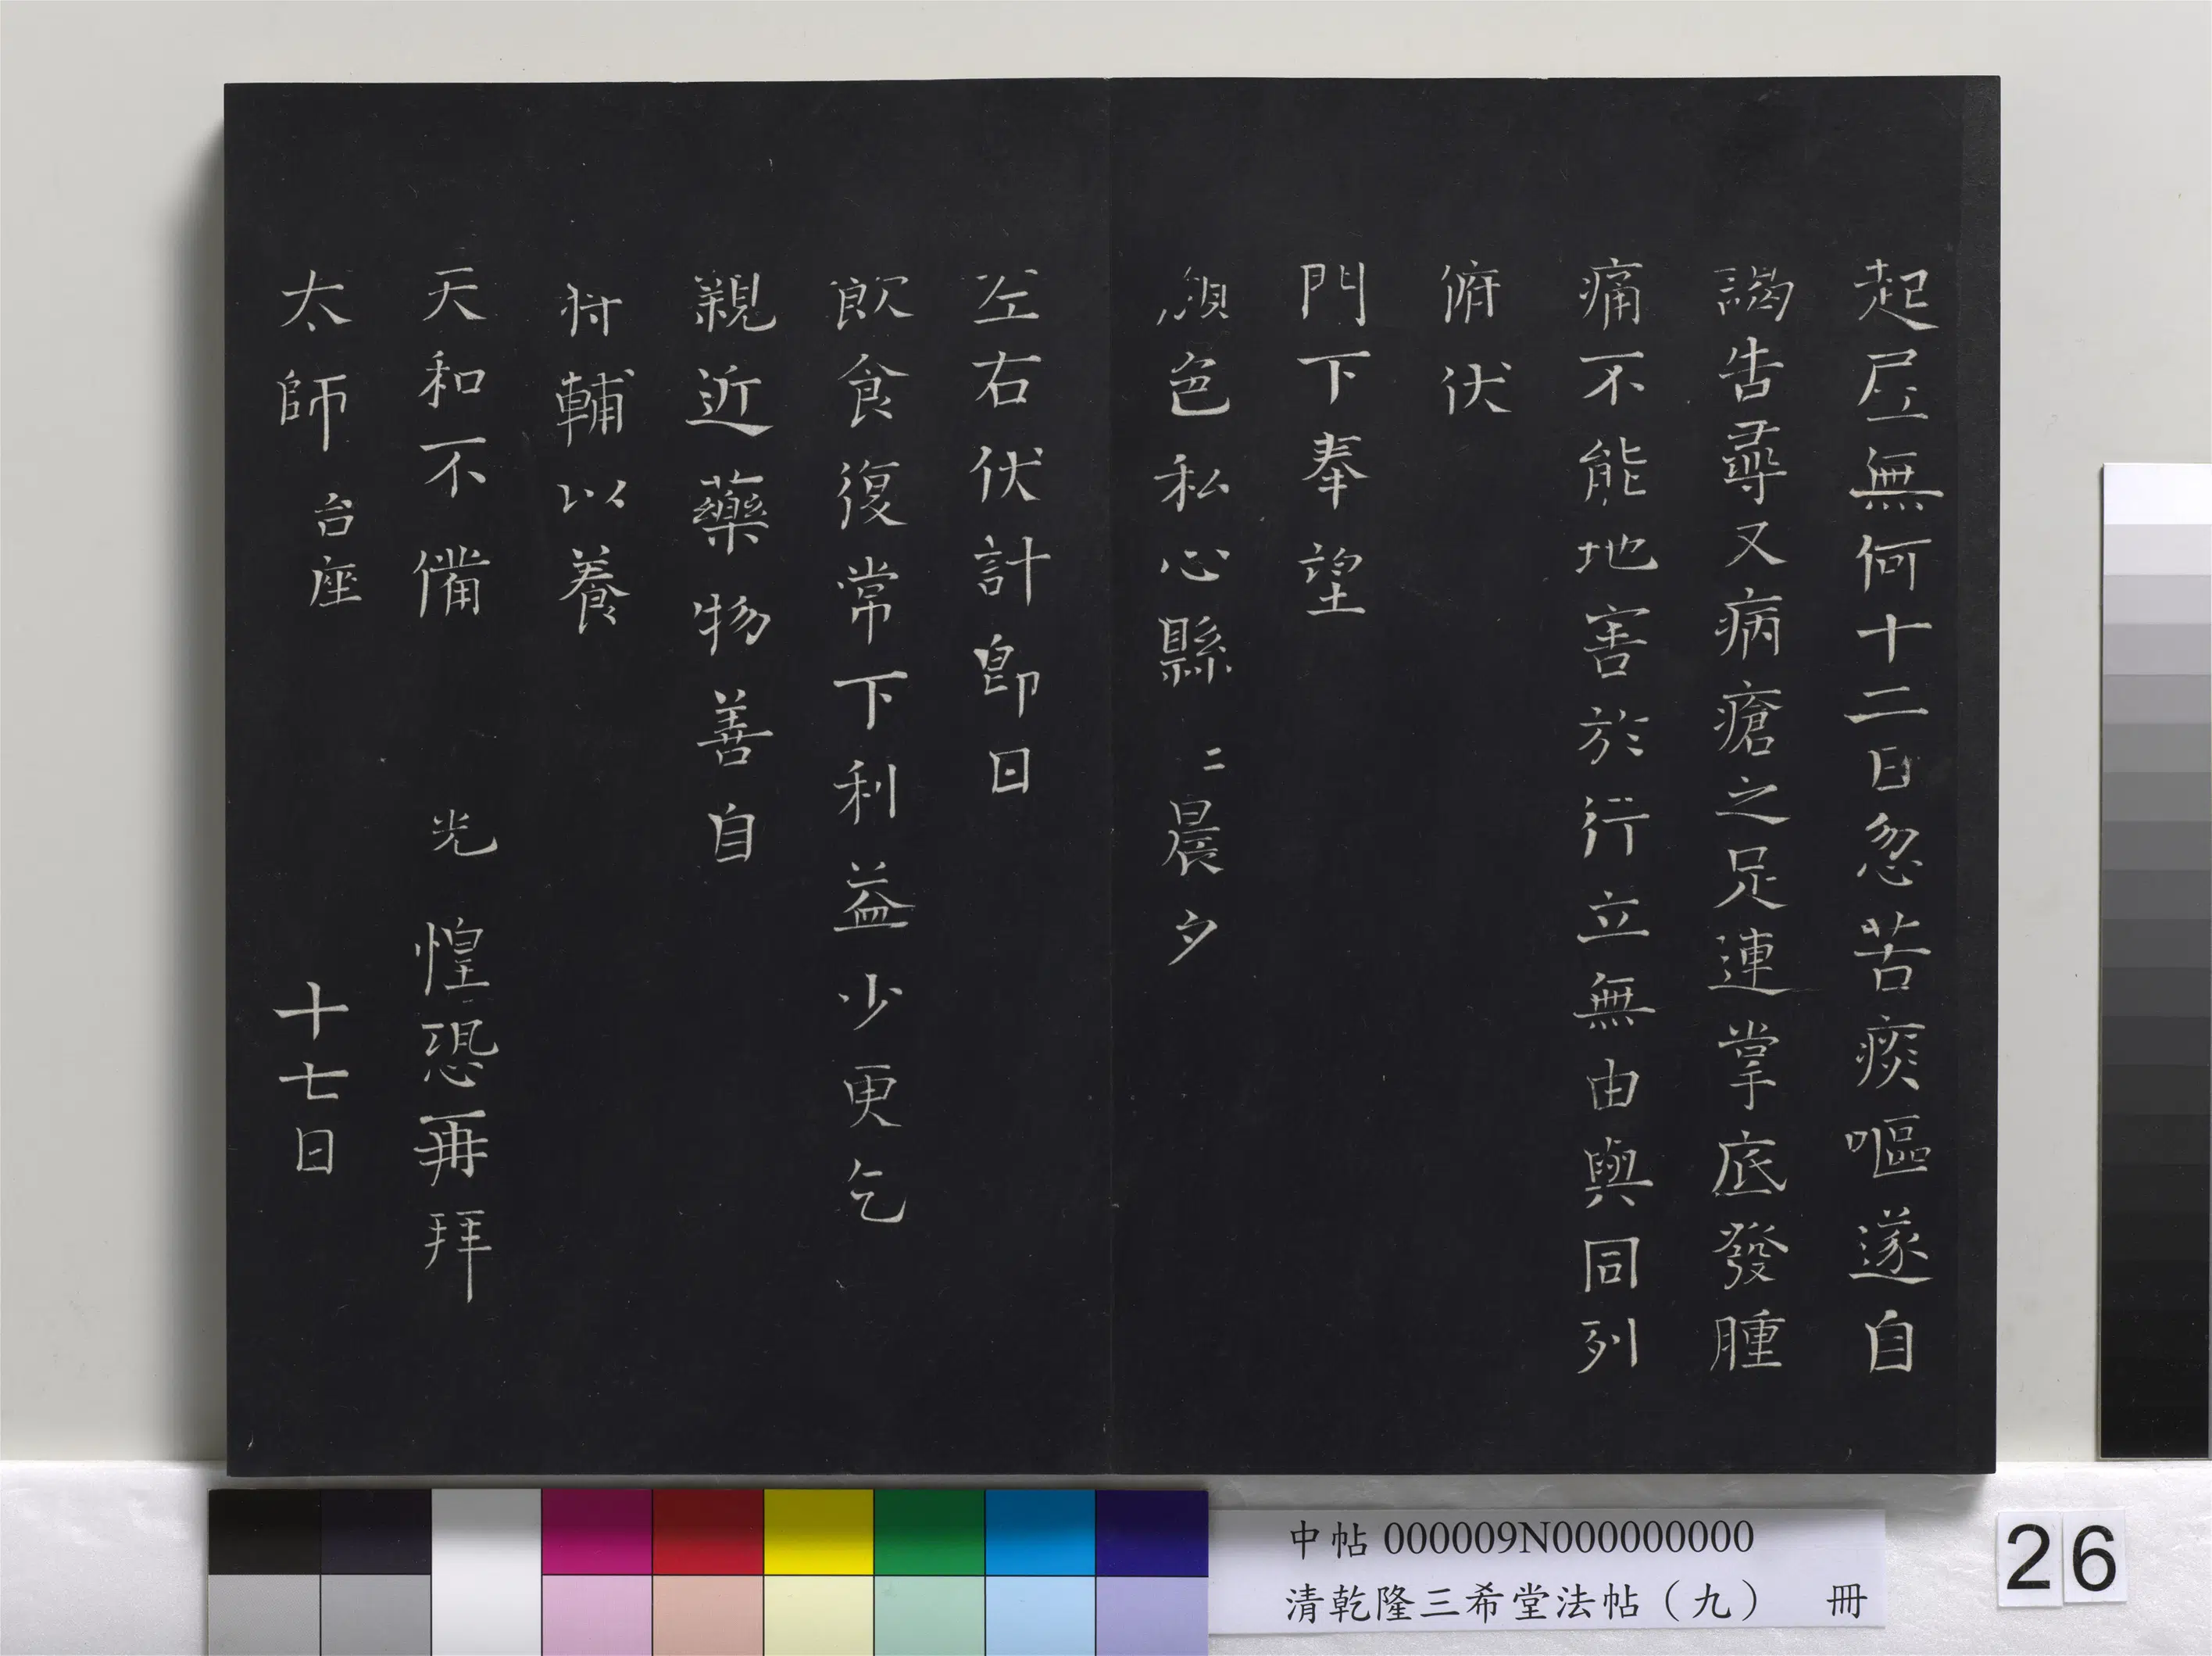 起居無何十二日忽苦痰嘔遂自
謁告尋又病瘡之足連掌底發腫
痛不能地害於行立無由與同列
俯伏
門下奉望
顏色私心縣二晨夕
左右伏計即日
飲食復常下利益少更乞
親近藥物善自
將輔以養
天和不備 光 惶恐再拜
太師 台座 十七日
中帖 000009N000000000
清乾隆三希堂法帖（九） 冊
26